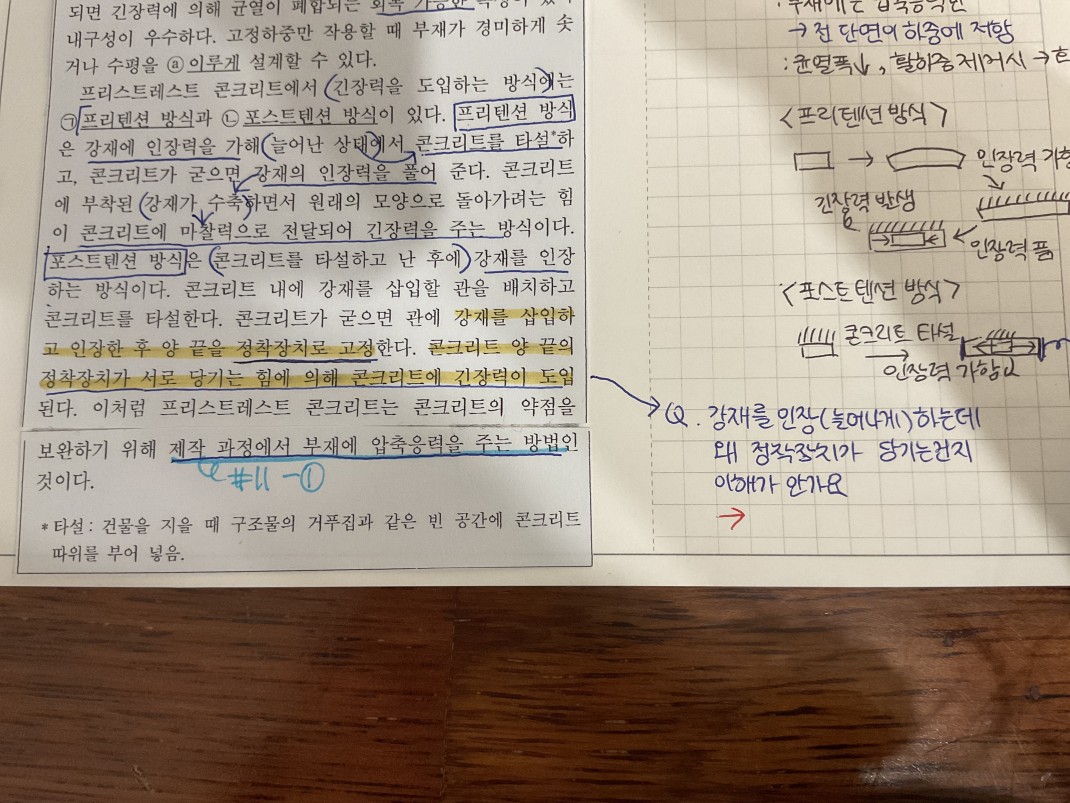 되면 긴장력에 의해 균열이 폐합되는 회복 가능한
내구성이 우수하다. 고정하중만 작용할 때 부재가 경미하게 솟
거나 수평을 ⓐ 이루게 설계할 수 있다.
프리스트레스트 콘크리트에서 긴장력을 도입하는 방식에는
㉠ 프리텐션 방식과 ㉡ 포스트텐션 방식이 있다. 프리텐션 방식
은 강재에 인장력을 가해 늘어난 상태에서 콘크리트를 타설*하
고, 콘크리트가 굳으면 강재의 인장력을 풀어 준다. 콘크리트
에 부착된 강재가 수축하면서 원래의 모양으로 돌아가려는 힘
이 콘크리트에 마찰력으로 전달되어 긴장력을 주는 방식이다.
포스트텐션 방식은 콘크리트를 타설하고 난 후에 강재를 인장
하는 방식이다. 콘크리트 내에 강재를 삽입할 관을 배치하고
콘크리트를 타설한다. 콘크리트가 굳으면 관에 강재를 삽입하
고 인장한 후 양 끝을 정착장치로 고정한다. 콘크리트 양 끝의
정착장치가 서로 당기는 힘에 의해 콘크리트에 긴장력이 도입
된다. 이처럼 프리스트레스트 콘크리트는 콘크리트의 약점을
보완하기 위해 제작 과정에서 부재에 압축응력을 주는 방법인
것이다.
#11-①
*타설: 건물을 지을 때 구조물의 거푸집과 같은 빈 공간에 콘크리트
따위를 부어 넣음.
→ 전 단면이 하중에 저항
: 균열폭↓, 탈하중 제거시 →
<프리텐션 방식>
인장력 가함
긴장력 발생
인장력 품
<포스트텐션 방식>
콘크리트 타설
인장력 가함
Q. 강재를 인장(늘어나게)하는데
왜 정착장치가 당기는건지
이해가 안가요
→